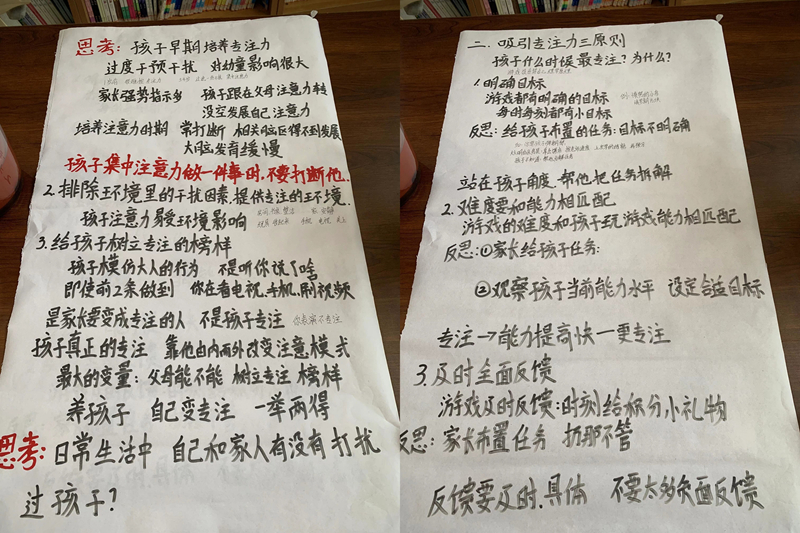 思考: 孩子早期培养专注力
过度干预干扰 对幼童影响很大
家长强势指示多 孩子跟在父母注意力转
没空发展自己注意力
培养注意力时期 常打断 相关脑区得不到发展
大脑发育缓慢
孩子集中注意力做一件事时,不要打断他..
2.排除环境里的干扰因素,提供专注的环境.
孩子注意力易受环境影响
3.给孩子树立专注的榜样
孩子模仿大人的行为 不是听你说了啥
即使前2条做到 你在看电视.手机.刷视频
是家长要变成专注的人 不是孩子专注
孩子真正的专注 靠他由内而外改变注意模式
最大的变量:父母能不能 树立专注榜样
养孩子 自己变专注 一举两得
思考:日常生活中 自己和家人有没有打扰
过孩子?
二、吸引专注力三原则
孩子什么时候最专注?为什么?
1.明确目标
游戏都有明确的目标
每时每刻都有小目标
反思:给孩子布置的任务:目标不明确
站在孩子角度.帮他把任务拆解
2.难度要和能力相匹配
游戏的难度和孩子玩游戏能力相匹配
反思:①家长给孩子任务:
②观察孩子当前能力水平 设定合适目标
专注→能力提高快一更专注
3.及时全面反馈
游戏及时反馈:时刻给积分小礼物
反思:家长布置任务 扔那不管
反馈要及时.具体 不要太多负面反馈